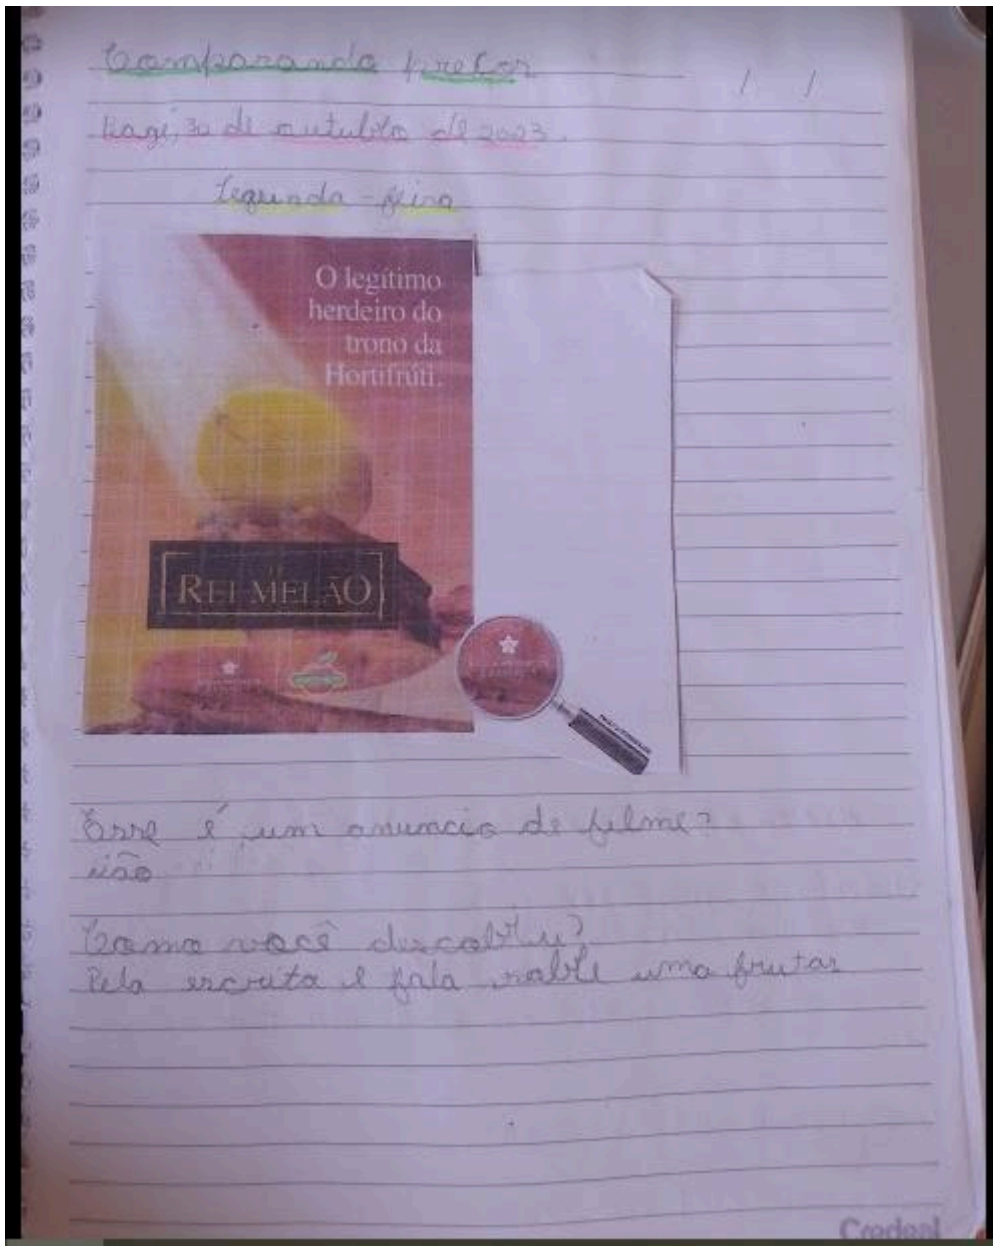 Comparando preços
/ /
Bagé, 30 de outubro de 2023.
Segunda-feira
O legítimo
herdeiro do
trono da
Hortifrúti.
REI MELÃO
Esse é um anuncio de filme?
não
Como você descobriu?
Pela escrita e fala sobre uma frutas
Credeal